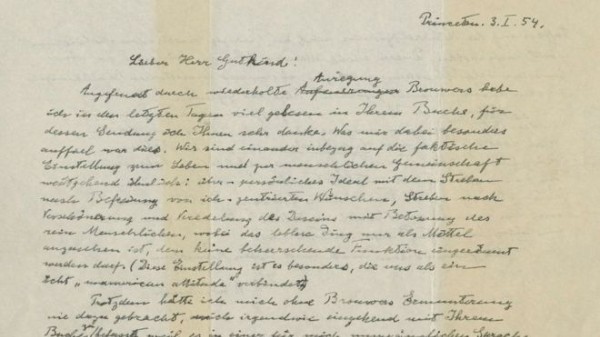 Princeton. 3. I. 54.
Lieber Herr Gutkind!
Angefeuert durch wiederholte Anregung Brouwers habe
ich in den letzten Tagen viel gelesen in Ihrem Buche, für
dessen Sendung ich Ihnen sehr danke. Was mir dabei besonders
auffiel war dies. Wir sind einander inbezug auf die faktische
Einstellung zum Leben und zur menschlichen Gemeinschaft
weitgehend ähnlich: über-persönliches Ideal mit dem Streben
nach Befreiung von ich-zentrierten Wünschen, Streben nach
Verschönerung und Veredelung des Daseins mit Betonung des
rein Menschlichen, wobei das leblose Ding nur als Mittel
anzusehen ist, dem keine beherrschende Funktion eingeräumt
werden darf. (Diese Einstellung ist es besonders, die uns als ein
echt "unamerican attitude" verbindet)
Trotzdem hätte ich mich ohne Brouwers Ermunterung
nie dazu gebracht, mich irgendwie eingehend mit Ihrem
Buche zu weil es in einer für mich unzugänglichen Sprache